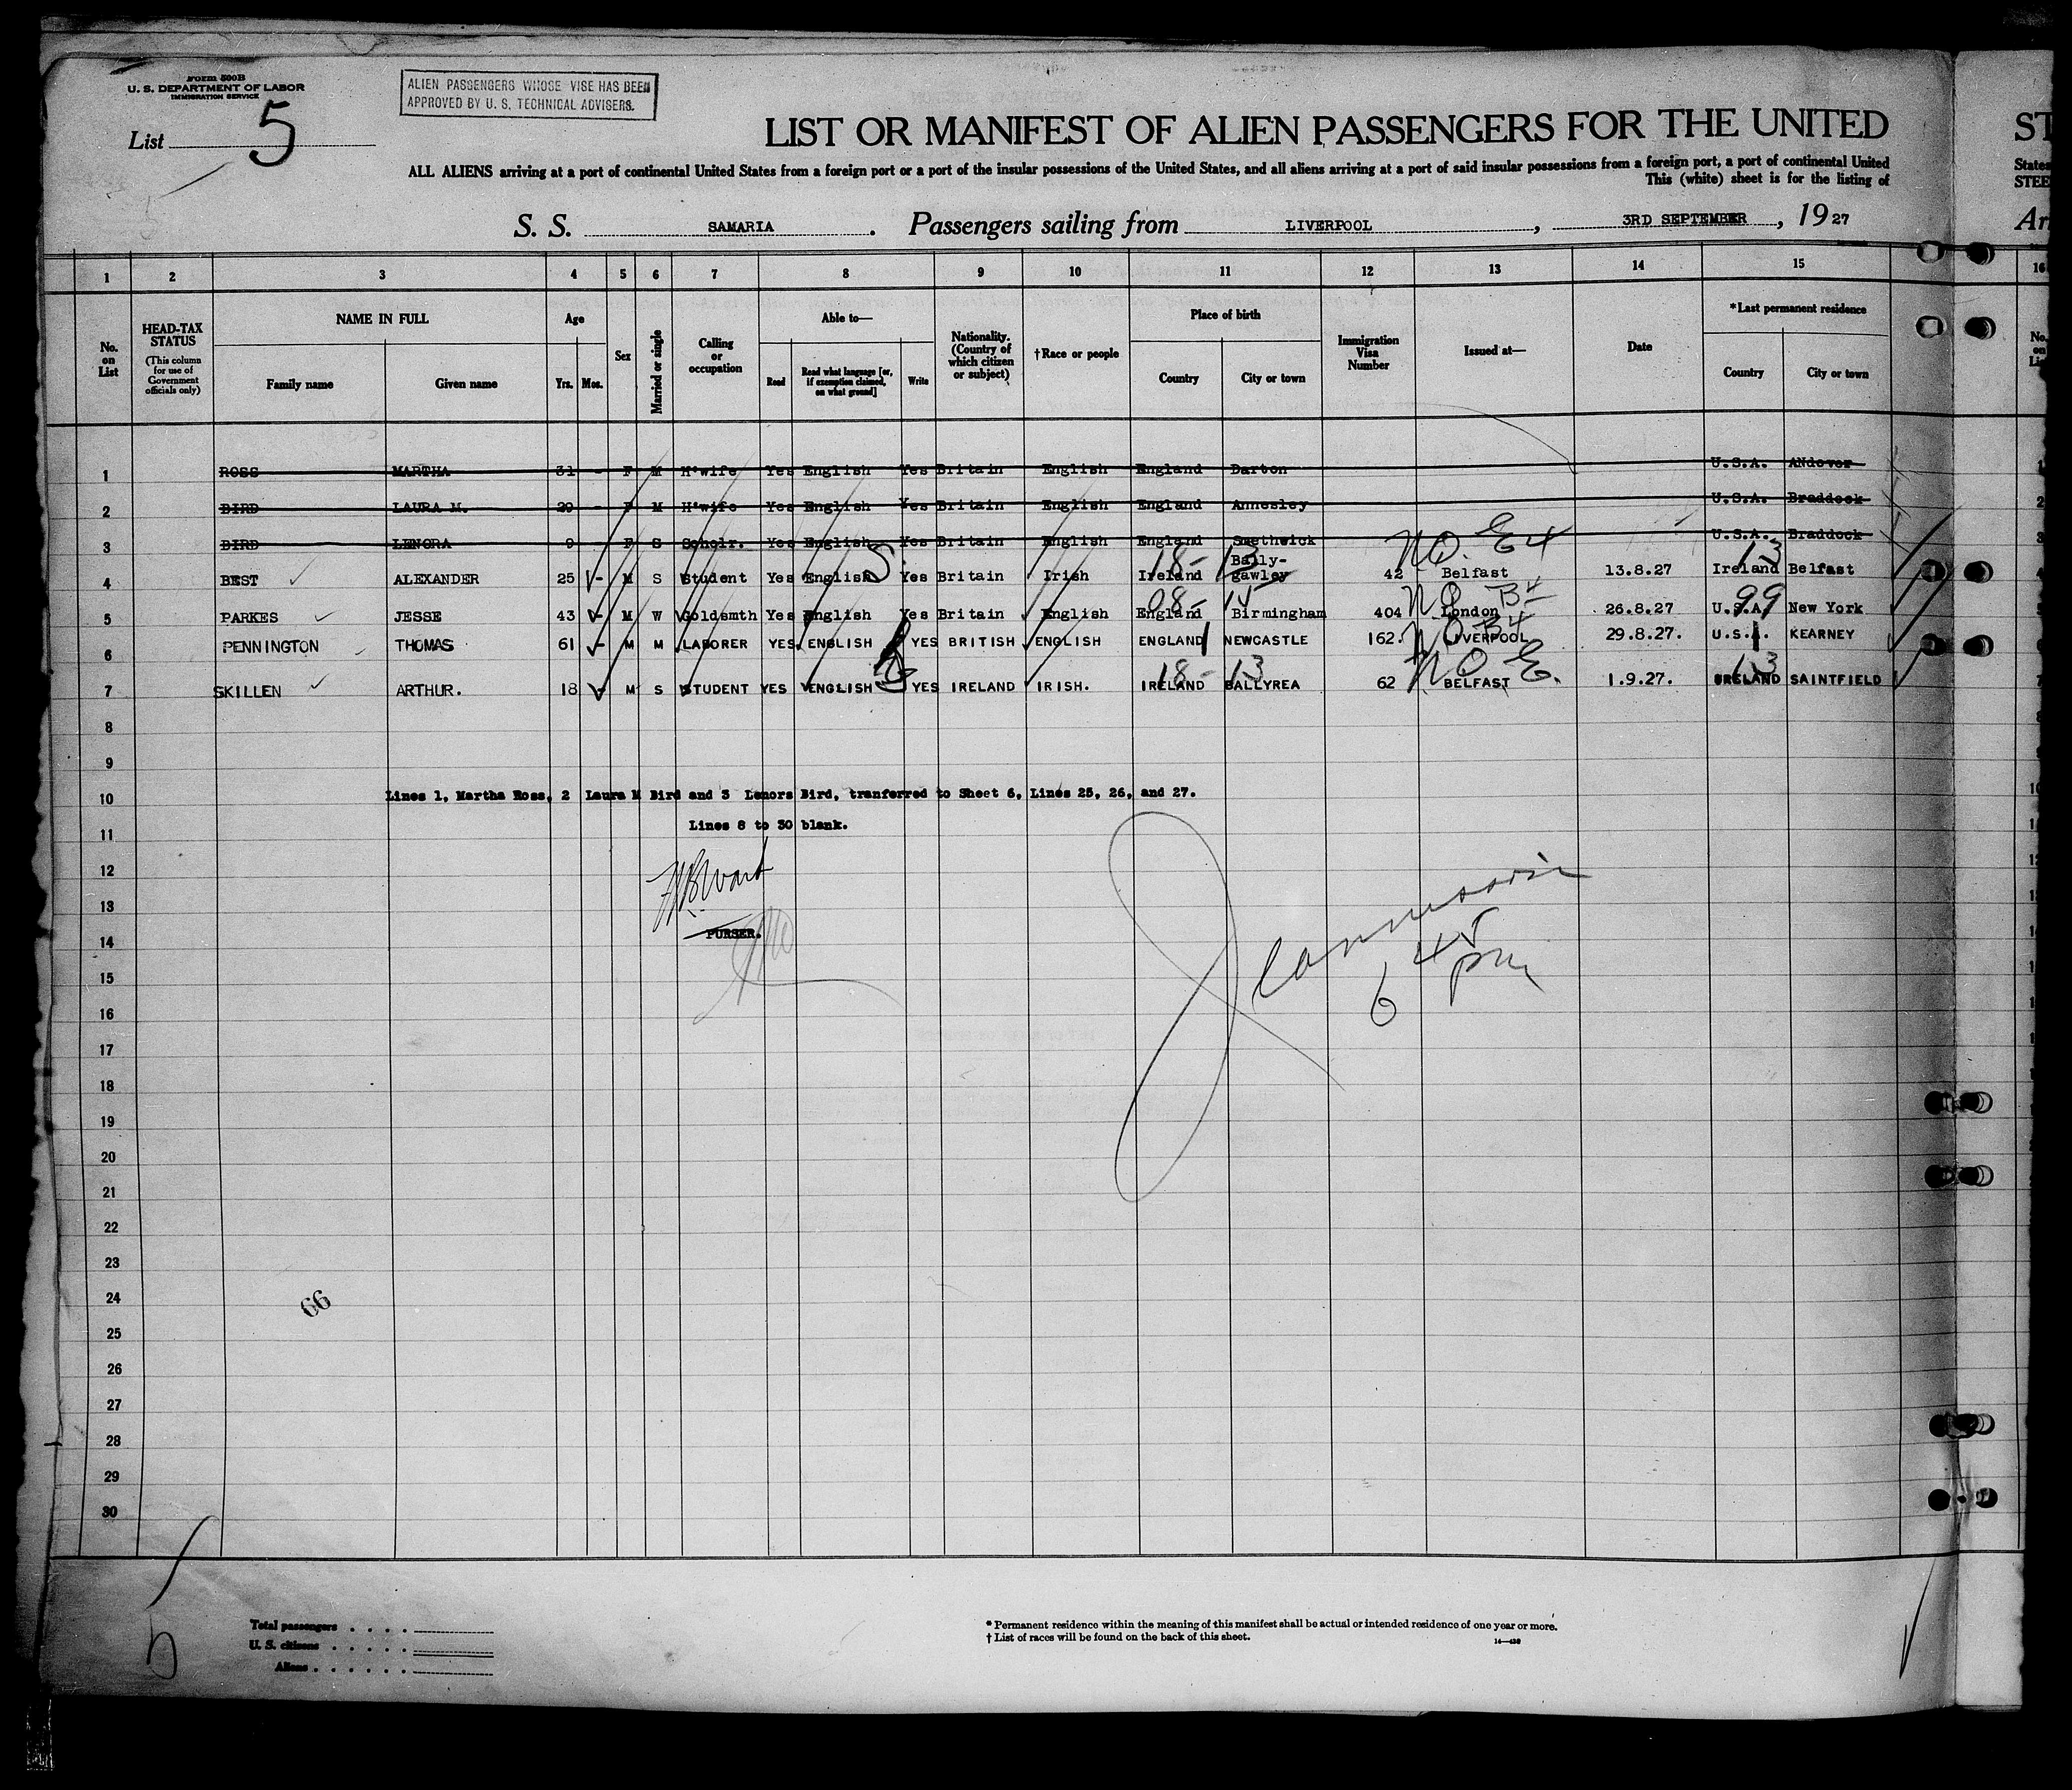 Form 500B
U. S. DEPARTMENT OF LABOR
IMMIGRATION SERVICE
List 5
ALIEN PASSENGERS WHOSE VISE HAS BEEN
APPROVED BY U. S. TECHNICAL ADVISERS.
LIST OR MANIFEST OF ALIEN PASSENGERS FOR THE UNITED
ALL ALIENS arriving at a port of continental United States from a foreign port or a port of the insular possessions of the United States, and all aliens arriving at a port of said insular possessions from a foreign port, a port of continental United
This (white) sheet is for the listing of
S. S. SAMARIA . Passengers sailing from LIVERPOOL , 3RD SEPTEMBER , 1927
ST
States
STEE
Ar
1 2 3 4 5 6 7 8 9 10 11 12 13 14 15 16
No. on List
HEAD-TAX STATUS
(This column for use of Government officials only)
NAME IN FULL
Family name Given name
Age
Yrs. Mos.
Sex
Married or single
Calling or occupation
Able to—
Read Read what language [or, if exemption claimed, on what ground] Write
Nationality. (Country of which citizen or subject)
†Race or people
Place of birth
Country City or town
Immigration Visa Number
Issued at—
Date
*Last permanent residence
Country City or town
No. on Li
1 ROSS MARTHA 31 - F M H'wife Yes English Yes Britain English England Darton U.S.A. ANdover
2 BIRD LAURA M. 29 - F M H'wife Yes English Yes Britain English England Annesley U.S.A. Braddock
3 BIRD LENORA 9 - F S Scholr. Yes English Yes Britain English England Smethwick U.S.A. Braddock
18- 13 NO. 13
4 BEST ALEXANDER 25 - M S Student Yes English Yes Britain Irish Ireland Bally-gawley 42 Belfast 13.8.27 Ireland Belfast
08- 14 99
5 PARKES JESSE 43 - M W Goldsmth Yes English Yes Britain English England Birmingham 404 London 26.8.27 U.S.A. New York
6 PENNINGTON THOMAS 61 - M M LABORER YES ENGLISH YES BRITISH ENGLISH ENGLAND NEWCASTLE 162. LIVERPOOL 29.8.27. U.S.A. KEARNEY
18- 13 13
7 SKILLEN ARTHUR. 18 - M S STUDENT YES ENGLISH YES IRELAND IRISH. IRELAND BALLYREA 62 BELFAST 1.9.27. IRELAND SAINTFIELD
8
9
10 Lines 1, Martha Ross, 2 Laura M Bird and 3 Lenors Bird, tranferred to Sheet 6, Lines 25, 26, and 27.
11 Lines 8 to 30 blank.
12
13
14 PURSER.
6 45 pm
15
16
17
18
19
20
21
22
23
24
66
25
26
27
28
29
30
Total passengers . . . .
U. S. citizens . . . . .
Aliens . . . . . .
* Permanent residence within the meaning of this manifest shall be actual or intended residence of one year or more.
† List of races will be found on the back of this sheet.
14—430